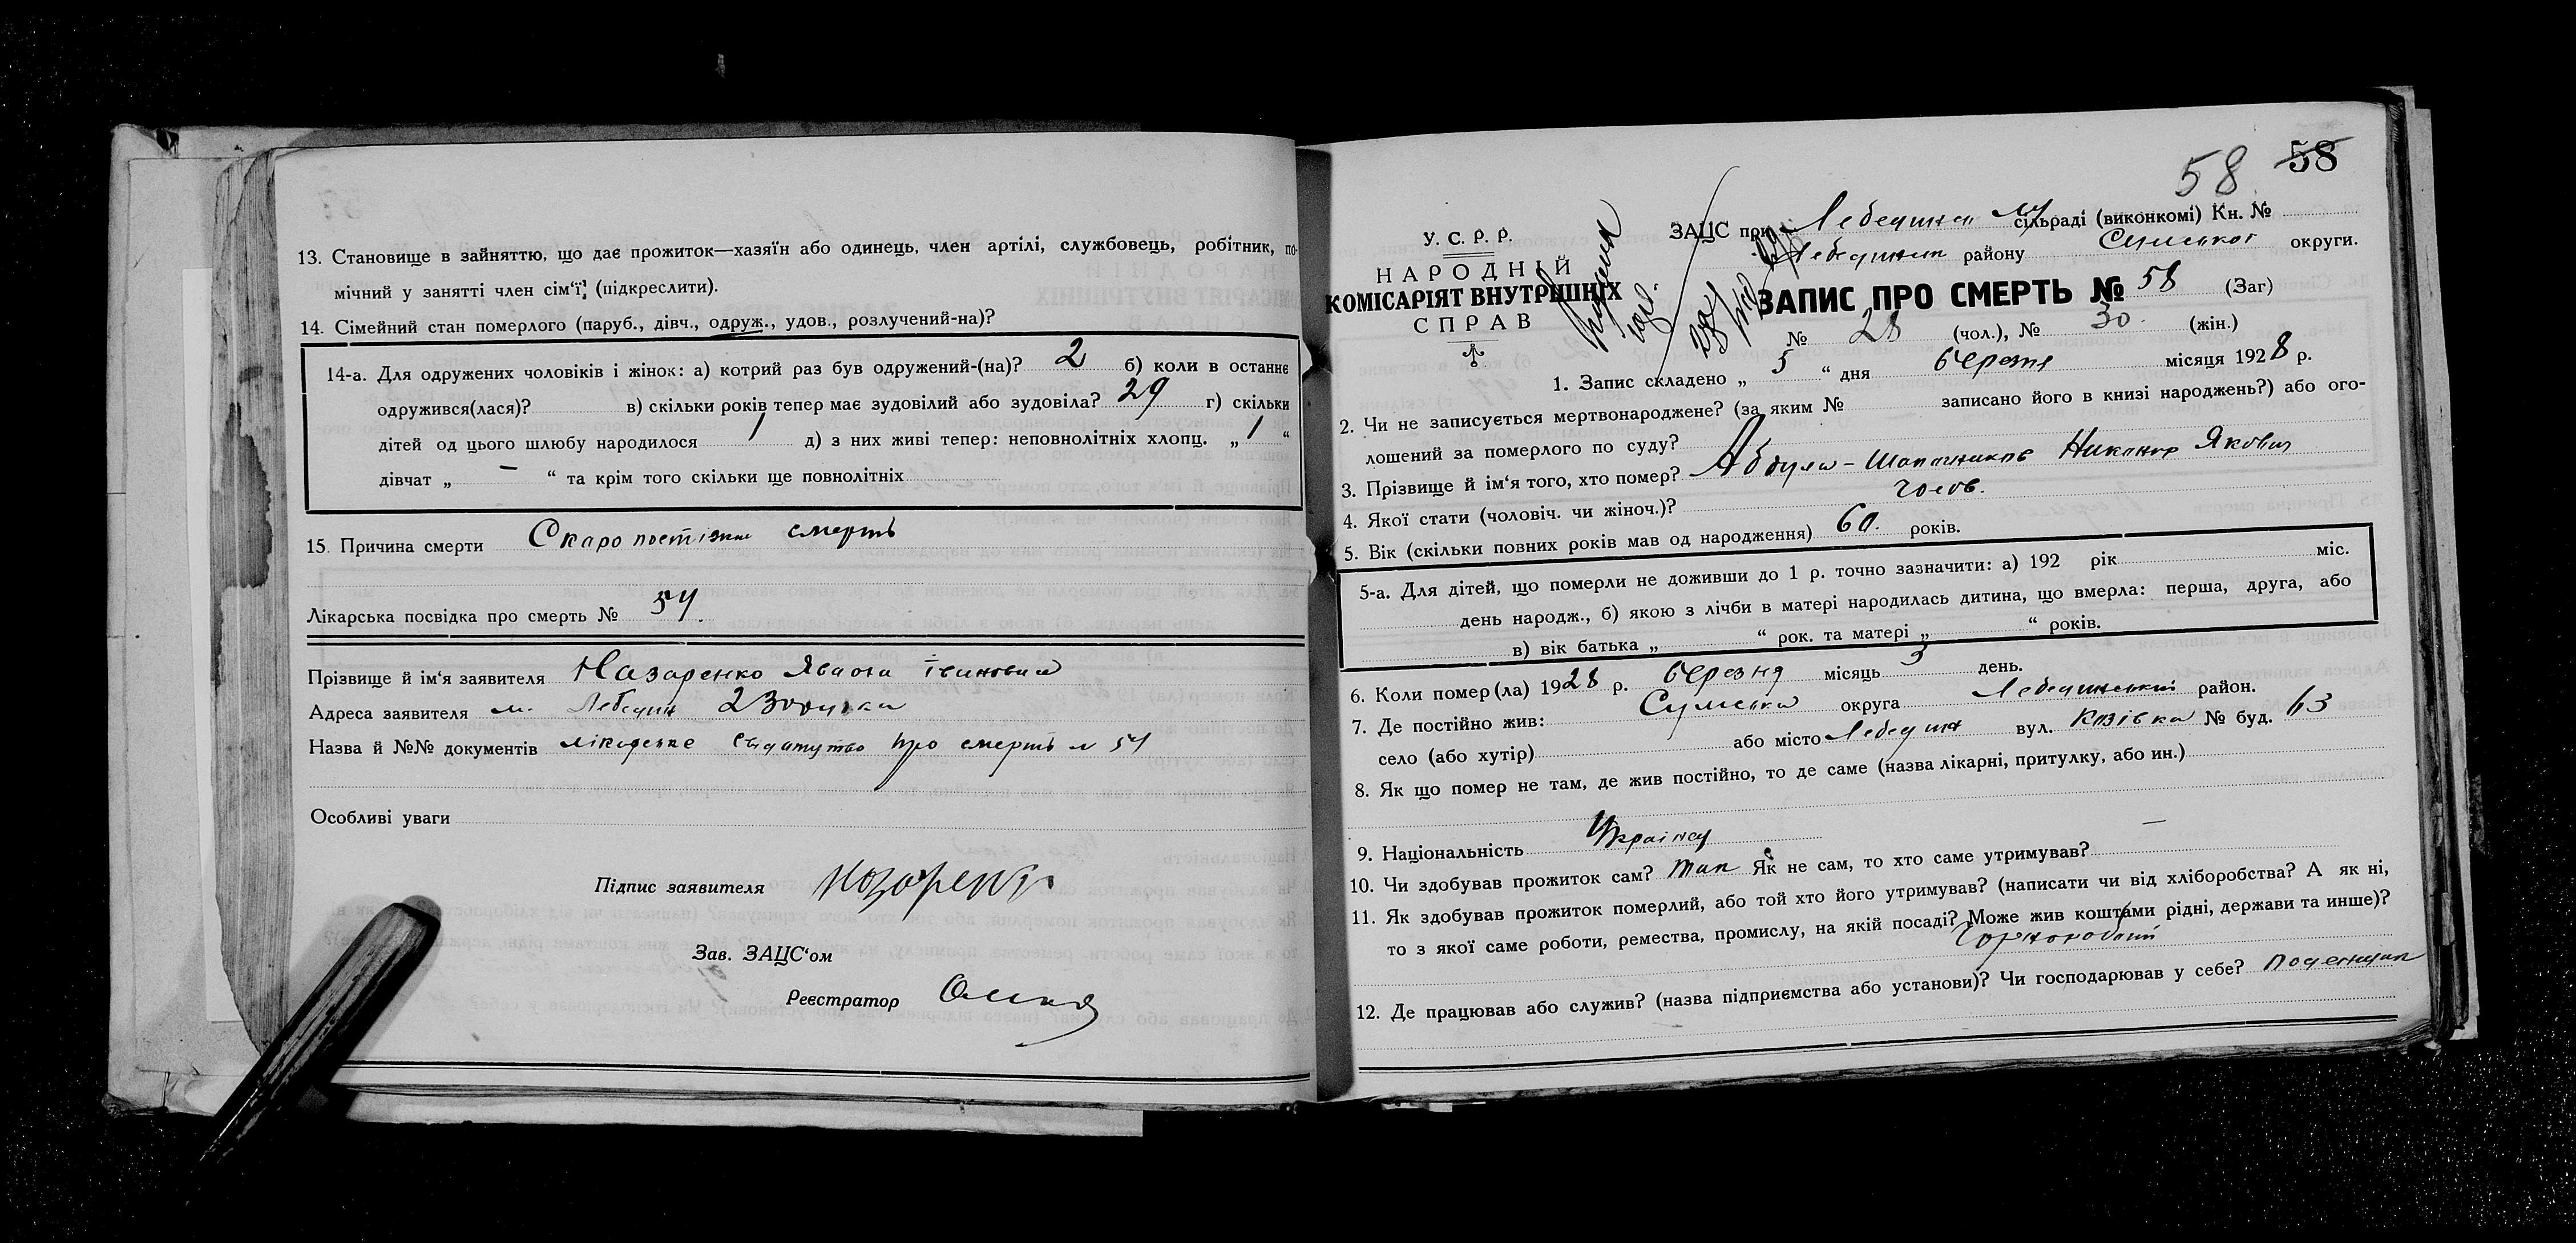 13. Становище в зайняттю, що дає прожиток—хазяїн або одинець, член артілі, службовець, робітник, по-
мічний у занятті член сім'ї? (підкреслити).
14. Сімейний стан померлого (паруб., дівч., одруж., удов., розлучений-на)?
14-а. Для одружених чоловіків і жінок: а) котрий раз був одружений-(на)? 2 б) коли в останнє
одружився(лася)? в) скільки років тепер має зудовілий або зудовіла? 29 г) скільки
дітей од цього шлюбу народилося 1 д) з них живі тепер: неповнолітніх хлопц. „ 1 “
дівчат „ — “ та крім того скільки ще повнолітніх
15. Причина смерти Скоропостіжна смерть
Лікарська посвідка про смерть № 54.
Прізвище й ім'я заявителя Назаренко
Адреса заявителя м. Лебедин
Назва й №№ документів лікарське про смерть № 54
Особливі уваги
Підпис заявителя Назаренко
Зав. ЗАЦС'ом
Реєстратор
58 58
У. С. Р. Р.
НАРОДНІЙ
КОМІСАРІЯТ ВНУТРІШНІХ
СПРАВ
ЗАЦС при Лебединск сільраді (виконкомі) Кн. №
Лебединск району Сумської округи.
ЗАПИС ПРО СМЕРТЬ № 58 (Заг)
№ 28 (чол.), № 30. (жін.)
1. Запис складено „ 5 “ дня березня місяця 1928 р.
2. Чи не записується мертвонароджене? (за яким № записано його в книзі народжень?) або ого-
лошений за померлого по суду?
3. Прізвище й ім'я того, хто помер? Абдула-Шапошников Никанор Якович
4. Якої стати (чоловіч. чи жіноч.)? чолов.
5. Вік (скільки повних років мав од народження) 60. років.
5-а. Для дітей, що померли не доживши до 1 р. точно зазначити: а) 192 рік міс.
день народж., б) якою з лічби в матері народилась дитина, що вмерла: перша, друга, або
в) вік батька „ “ рок. та матері „ “ років.
6. Коли помер(ла) 1928 р. березня місяць 3 день.
7. Де постійно жив: Сумська округа Лебединський район.
село (або хутір) або місто Лебедин вул. Козівка № буд. 63
8. Як що помер не там, де жив постійно, то де саме (назва лікарні, притулку, або ин.)
9. Національність Українец
10. Чи здобував прожиток сам? так Як не сам, то хто саме утримував? —
11. Як здобував прожиток померлий, або той хто його утримував? (написати чи від хліборобства? А як ні,
то з якої саме роботи, ремества, промислу, на якій посаді? Може жив коштами рідні, держави та инше)?
Чорнороб
12. Де працював або служив? (назва підприємства або установи)? Чи господарював у себе? поденщик